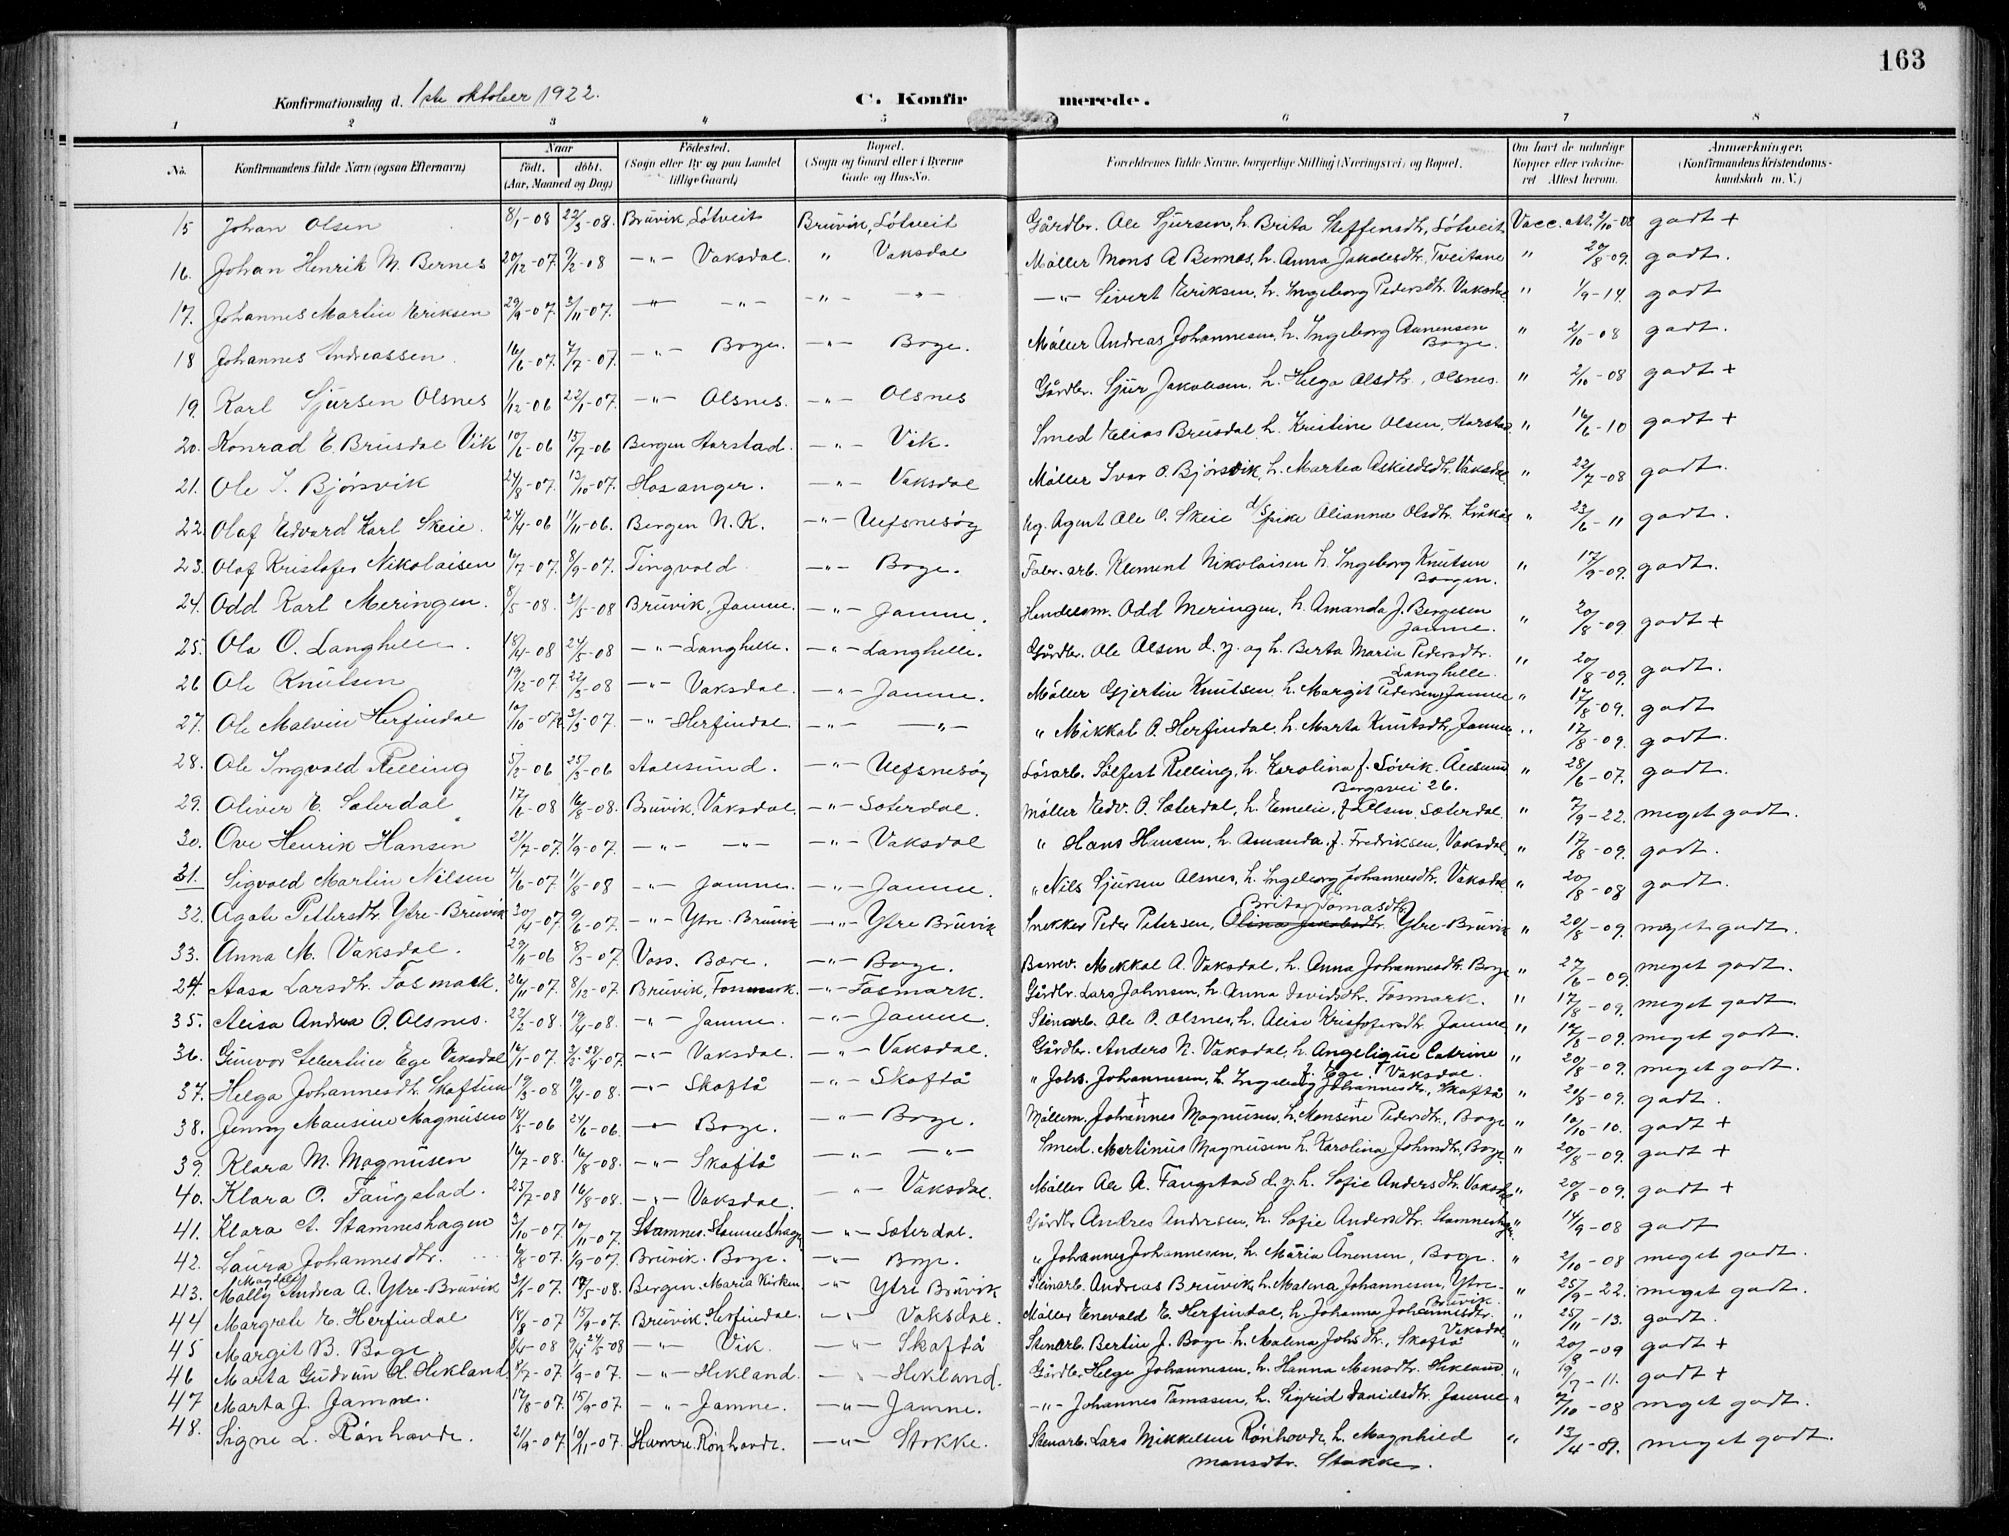 163
Konfirmationsdag d. 1ste oktober 1922.
C. Konfirmerede.
1 2 3 4 5 6 7 8
No. Konfirmandens fulde Navn (ogsaa Efternavn) Naar født. døbt. (Aar, Maaned og Dag) Fødested. (Sogn eller By og paa Landet tillige Gaard) Bopæl. (Sogn og Gaard eller i Byerne Gade og Hus-No. Forældrenes fulde Navne, borgerlige Stilling (Næringsvei) og Bopæl. Om havt de naturlige Kopper eller vaccineret Attest herom. Anmærkninger. (Konfirmandens Kristendomskundskab m. V.)
15 Johan Olsen 8/1-08 22/3-08. Bruvik Løtveit Bruvik, Løtveit Gårdbr. Ole Sjursen, h. Brita Steffensdtr, Løtveit Vacc. att. 2/10-08 godt +
16. Johan Henrik M. Bernes 20/12-07. 9/2-08 -"- Vaksdal. " Vaksdal Møller Mons A Bernes, h. Anna Jakobsdtr. Tveitane " 20/8-09. godt.
17. Johannes Martin Eriksen 29/9-07. 3/11-07. -"- -"- -"- -"- -"- Sivert Eriksen, h. Ingeborg Pedersdtr. Vaksdal " 1/9-14. godt
18 Johannes Andreassen. 16/6-07. 7/7-07. -"- Boge. -"- Boge. Møller Andreas Johannesen, h. Ingeborg Aanensen Boge. " 2/10-08 godt.
19. Karl Sjursen Olsnes 1/12-06 22/1-07. -"- Olsnes. -"- Olsnes Gårdbr. Sjur Jakobsen, h. Helga Olsdtr., Olsnes. " 2/10-08 godt +
20. Konrad E. Brusdal Vik 10/6-06 15/7-06 Bergen Harstad. -"- Vik. Smed Elias Brusdal h. Kristine Olsen, Harstad " 16/6-10 godt +
21. Ole I. Bjørsvik 24/8-07. 13/10-07. Hosanger. -"- Vaksdal Møller Ivar O. Bjørsvik, h. Martea Askildsdtr. Vaksdal " 22/7-08 godt.
22. Olaf Edvard Karl Skeie. 24/4-06 11/11-06. Bergen N. K. -"- Ulfsnesøy Ug. Agent Ole O. Skeie d/s pike Olianna Olsdtr. Kråkås " 23/6-11 godt.
23. Olaf Kristofer Nikolaisen 10/7-07. 8/9-07. Tingvold -"- Boge. Fabr. arb. Klement Nikolaisen h. Ingeborg Knutsen Bergen. " 17/9-09. godt.
24. Odd Karl Meringen. 8/5-08. 31/5-08 Bruvik, Jamne. -"- Jamne. Handelsm. Odd Meringen, h. Amanda J. Bergesen Jamne. " 20/8-09 godt +
25. Ola O. Langhelle. 18/4-08 24/5-08 -"- Langhelle. -"- Langhelle. Gårdbr. Ole Olsen d. y. og h. Berta Marie Pedersdtr. Langhelle. " 20/8-09. godt.
26 Ole Knutsen 19/12-07 22/3-08 -"- Vaksdal. -"- Jamne. Møller Gjertin Knutsen, h. Margit Pedersen, Jamne " 17/8-09. godt
27. Ole Malvin Herfindal -"- Herfindal. -"- -"- " Mikkal O. Herfindal, h. Marta Knutsdtr, Jamne " 17/8-09. godt.
28. Ole Ingvald Relling 5/2-06 25/3-06 Aalesund. -"- Ulfsnesøy Løsarb. Sølfest Relling, h. Karolina f. Søvik. Ålesund Borgsvei 26. " 28/6-07. godt.
29. Oliver E. Sæterdal 17/6-08 16/8-08. Bruvik, Vaksdal. -"- Sæterdal. Møller Edv. O. Sæterdal, h. Emelie, f. Olsen, Sæterdal. " 7/9-22. meget godt.
30. Ove Henrik Hansen 21/7-07. 1/9-07. -"- -"- -"- Vaksdal " Hans Hansen, h. Amanda f. Fredriksen, Vaksdal, " 17/8-09. godt.
31. Sigvald Martin Nilsen 4/6-07. 11/8-08 -"- Jamne. -"- Jamne. " Nils Sjursen Olsnes, h. Ingeborg Johannesdtr. Vaksdal " 20/8-08 godt.
32. Agate Pettersdtr. Ytre-Bruvik 30/4-07 9/6-07. -"- Ytre-Bruvik -"- Ytre Bruvik Snekker Peder Petersen, Olina Jakobsdtr. Brita Tomasdtr. Ytre-Bruvik " 20/8-09. meget godt.
33. Anna M. Vaksdal. 29/11-06 8/3-07. Voss. Børe. -"- Boge. Banev. Mikkal A. Vaksdal, h. Anna Johannesdtr. Boge " 27/6-09. meget godt.
24. Aasa Larsdtr. Fosmark. 26/11-07. 8/12-07. Bruvik, Fossmark. -"- Fosmark. Gårdbr. Lars Johnsen, h Anna Davidsdtr. Fosmark. " 17/8-09. meget godt.
35. Alisa Andrea O. Olsnes. 22/2-08. 19/4-08. -"- Jamne. -"- Jamne. Stenarb. Ole O. Olsnes, h. Alise Kristofersdtr. Jamne " 17/8-09. meget godt.
36. Gunvor Albertine Ege Vaksdal -"- Vaksdal. -"- Vaksdal. Gårdbr. Anders N. Vaksdal, h. Angelique Catrine f. Ege, Vaksdal. " 20/8-09. meget godt.
37. Helga Johannesdtr. Skaftun 19/3-08 19/4-08. -"- Skaftå -"- Skaftå " Johs. Johannesen, h. Ingeborg Johannesdtr., Skaftå " 20/8-09. godt.
38. Jenny Mansine Magnusen 18/5-06 24/6-06. -"- Boge. -"- Boge. Møllem. Johannes Magnusen, h. Monsine Pedersdtr., Boge " 10/10-10. godt +
39. Klara M. Magnusen 16/7-08. 16/8-08. -"- Skaftå -"- -"- Smed. Martinus Magnusen h. Karolina Johnsdtr. Boge. " 20/8-09. godt +
40. Klara O. Faugstad. 25/7-08 16/8-08. -"- Vaksdal. -"- Vaksdal. Møller Ole A. Faugstad d. y. h. Sofie Andersdtr. Vaksdal " 20/8-09. godt +
41. Klara A. Stamneshagen 3/10-07. 10/11-07. Stamnes. Stamneshagen -"- Sæterdal. Gårdbr Andres Andersen, h. Sofie Andersdtr. Stamneshagen " 14/9-08 godt
42. Laura Johannesdtr. 6/8-07. 1/9-07. Bruvik. Boge. -"- Boge. " Johannes Johannesen, h. Maria Ånensen, Boge. " 2/10-08 meget godt.
43. Mally Magdal Andrea A. Ytre-Bruvik Bergen. Maria Kirken -"- Ytre Bruvik Stenarb. Andreas Bruvik, h. Malena Johannesen, Ytre-Bruvik. " 25/9-22. meget godt.
44 Margrete E. Herfindal 18/8-07 15/9-07. Bruvik. Herfindal. -"- Vaksdal. Møller Enevald E. Herfindal, h. Johanna Johannesdtr. Vaksdal " 25/11-13. godt.
45 Margit B. Boge 8/4-08 -"- Vik. -"- Skaftå Stenarb. Bertin J. Boge h. Malena Johs dtr., Skaftå " 20/8-09 godt +
46 Marta Gudrun H. Hekland 8/7-07. 1/9-07. -"- Hekland. -"- Hekland. Gårdbr. Helge Johannesen, h. Hanna Monsdtr. Hekland " 19/7-11. godt +
47 Marta J. Jamne. 17/8-07. 15/9-07. -"- Jamne. -"- Jamne. -"- Johannes Tomasen, h. Sigrid Danielsdtr. Jamne " 2/10-08 meget godt.
48. Signe L. Rønhovde. 21/9-07. 10/11-07. Hamre. Rønhovde. -"- Stokke. Stenarb. Lars Mikkelsen Rønhovde, h. Magnhild Monsdtr. Stokke. " 13/4-09. meget godt.